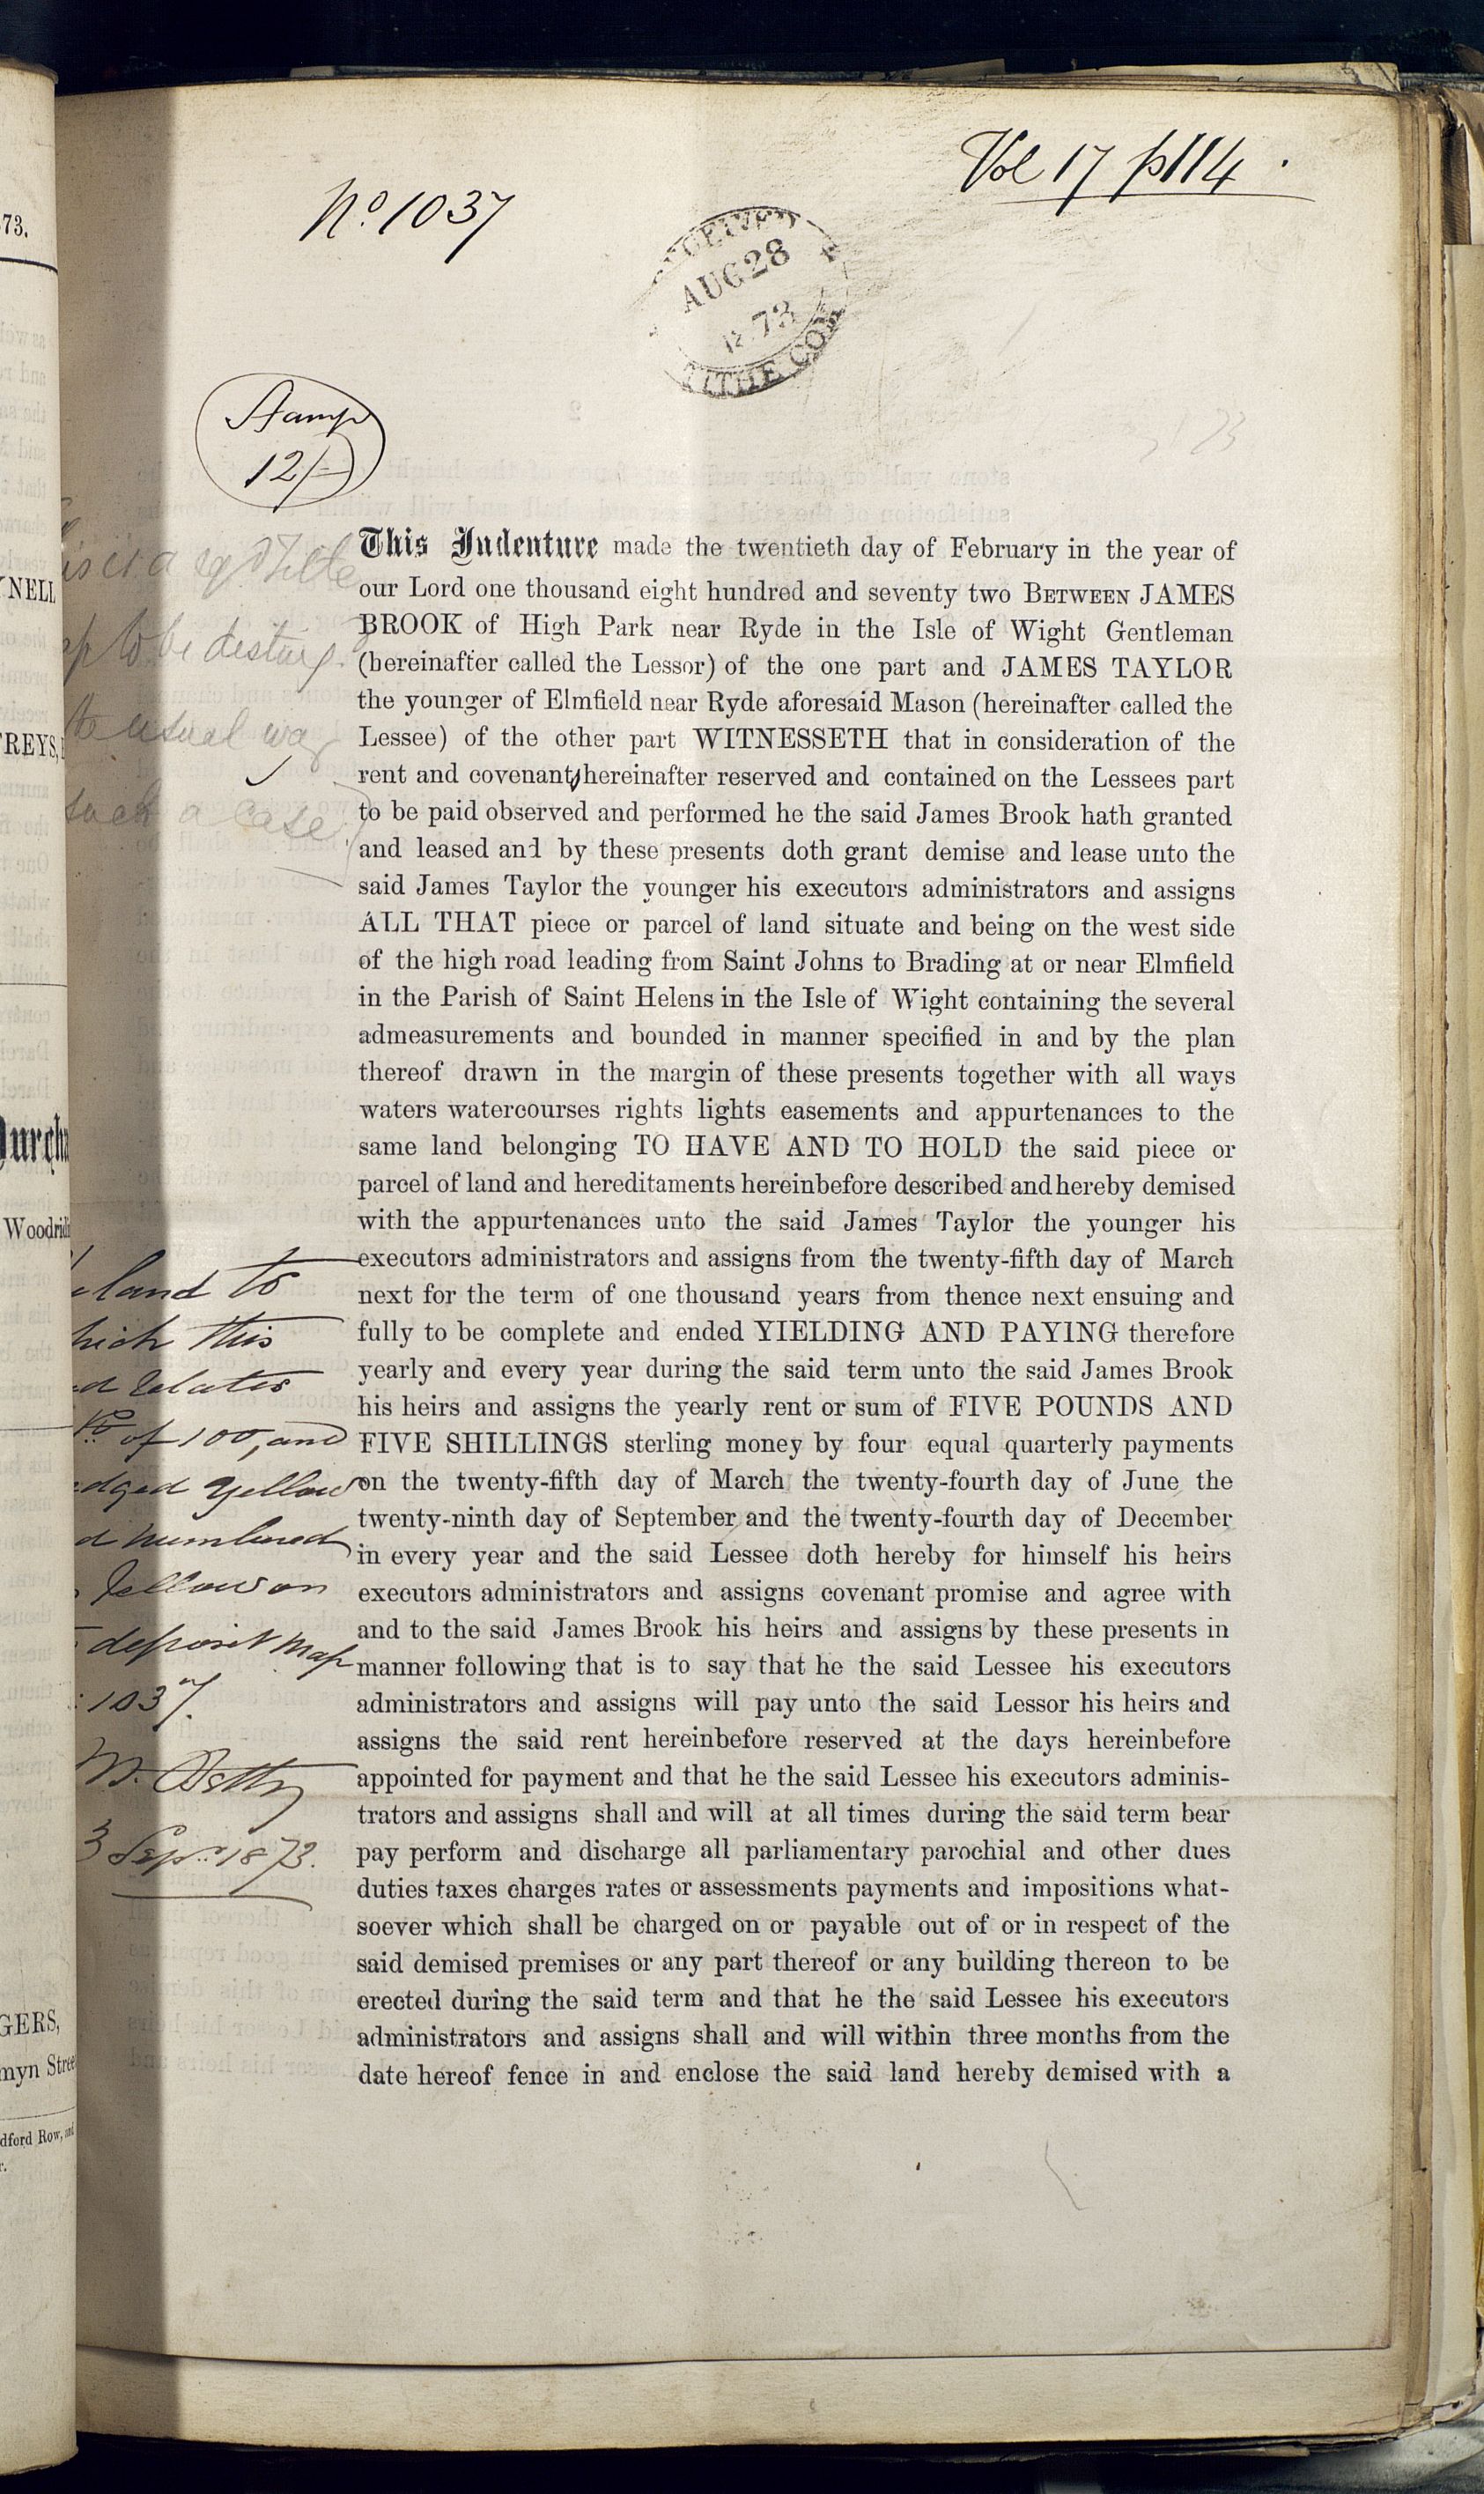 Vol 17 p114.
No. 1037
RECEIVED
AUG 28
1873
TITHE COM
Stamp
12/-
This Indenture made the twentieth day of February in the year of
our Lord one thousand eight hundred and seventy two BETWEEN JAMES
BROOK of High Park near Ryde in the Isle of Wight Gentleman
(hereinafter called the Lessor) of the one part and JAMES TAYLOR
the younger of Elmfield near Ryde aforesaid Mason (hereinafter called the
Lessee) of the other part WITNESSETH that in consideration of the
rent and covenants hereinafter reserved and contained on the Lessees part
to be paid observed and performed he the said James Brook hath granted
and leased and by these presents doth grant demise and lease unto the
said James Taylor the younger his executors administrators and assigns
ALL THAT piece or parcel of land situate and being on the west side
of the high road leading from Saint Johns to Brading at or near Elmfield
in the Parish of Saint Helens in the Isle of Wight containing the several
admeasurements and bounded in manner specified in and by the plan
thereof drawn in the margin of these presents together with all ways
waters watercourses rights lights easements and appurtenances to the
same land belonging TO HAVE AND TO HOLD the said piece or
parcel of land and hereditaments hereinbefore described and hereby demised
with the appurtenances unto the said James Taylor the younger his
executors administrators and assigns from the twenty-fifth day of March
next for the term of one thousand years from thence next ensuing and
fully to be complete and ended YIELDING AND PAYING therefore
yearly and every year during the said term unto the said James Brook
his heirs and assigns the yearly rent or sum of FIVE POUNDS AND
FIVE SHILLINGS sterling money by four equal quarterly payments
on the twenty-fifth day of March the twenty-fourth day of June the
twenty-ninth day of September and the twenty-fourth day of December
in every year and the said Lessee doth hereby for himself his heirs
executors administrators and assigns covenant promise and agree with
and to the said James Brook his heirs and assigns by these presents in
manner following that is to say that he the said Lessee his executors
administrators and assigns will pay unto the said Lessor his heirs and
assigns the said rent hereinbefore reserved at the days hereinbefore
appointed for payment and that he the said Lessee his executors adminis-
trators and assigns shall and will at all times during the said term bear
pay perform and discharge all parliamentary parochial and other dues
duties taxes charges rates or assessments payments and impositions what-
soever which shall be charged on or payable out of or in respect of the
said demised premises or any part thereof or any building thereon to be
erected during the said term and that he the said Lessee his executors
administrators and assigns shall and will within three months from the
date hereof fence in and enclose the said land hereby demised with a
usual way
such a case
land to
hich this
relates
of 100, and
dged yellow
numbered
yellow on
deposit map
1037.
3 Sep. 1873.
73.
NELL
REYS,
Woodrid
GERS,
myn Stree
dford Row, and